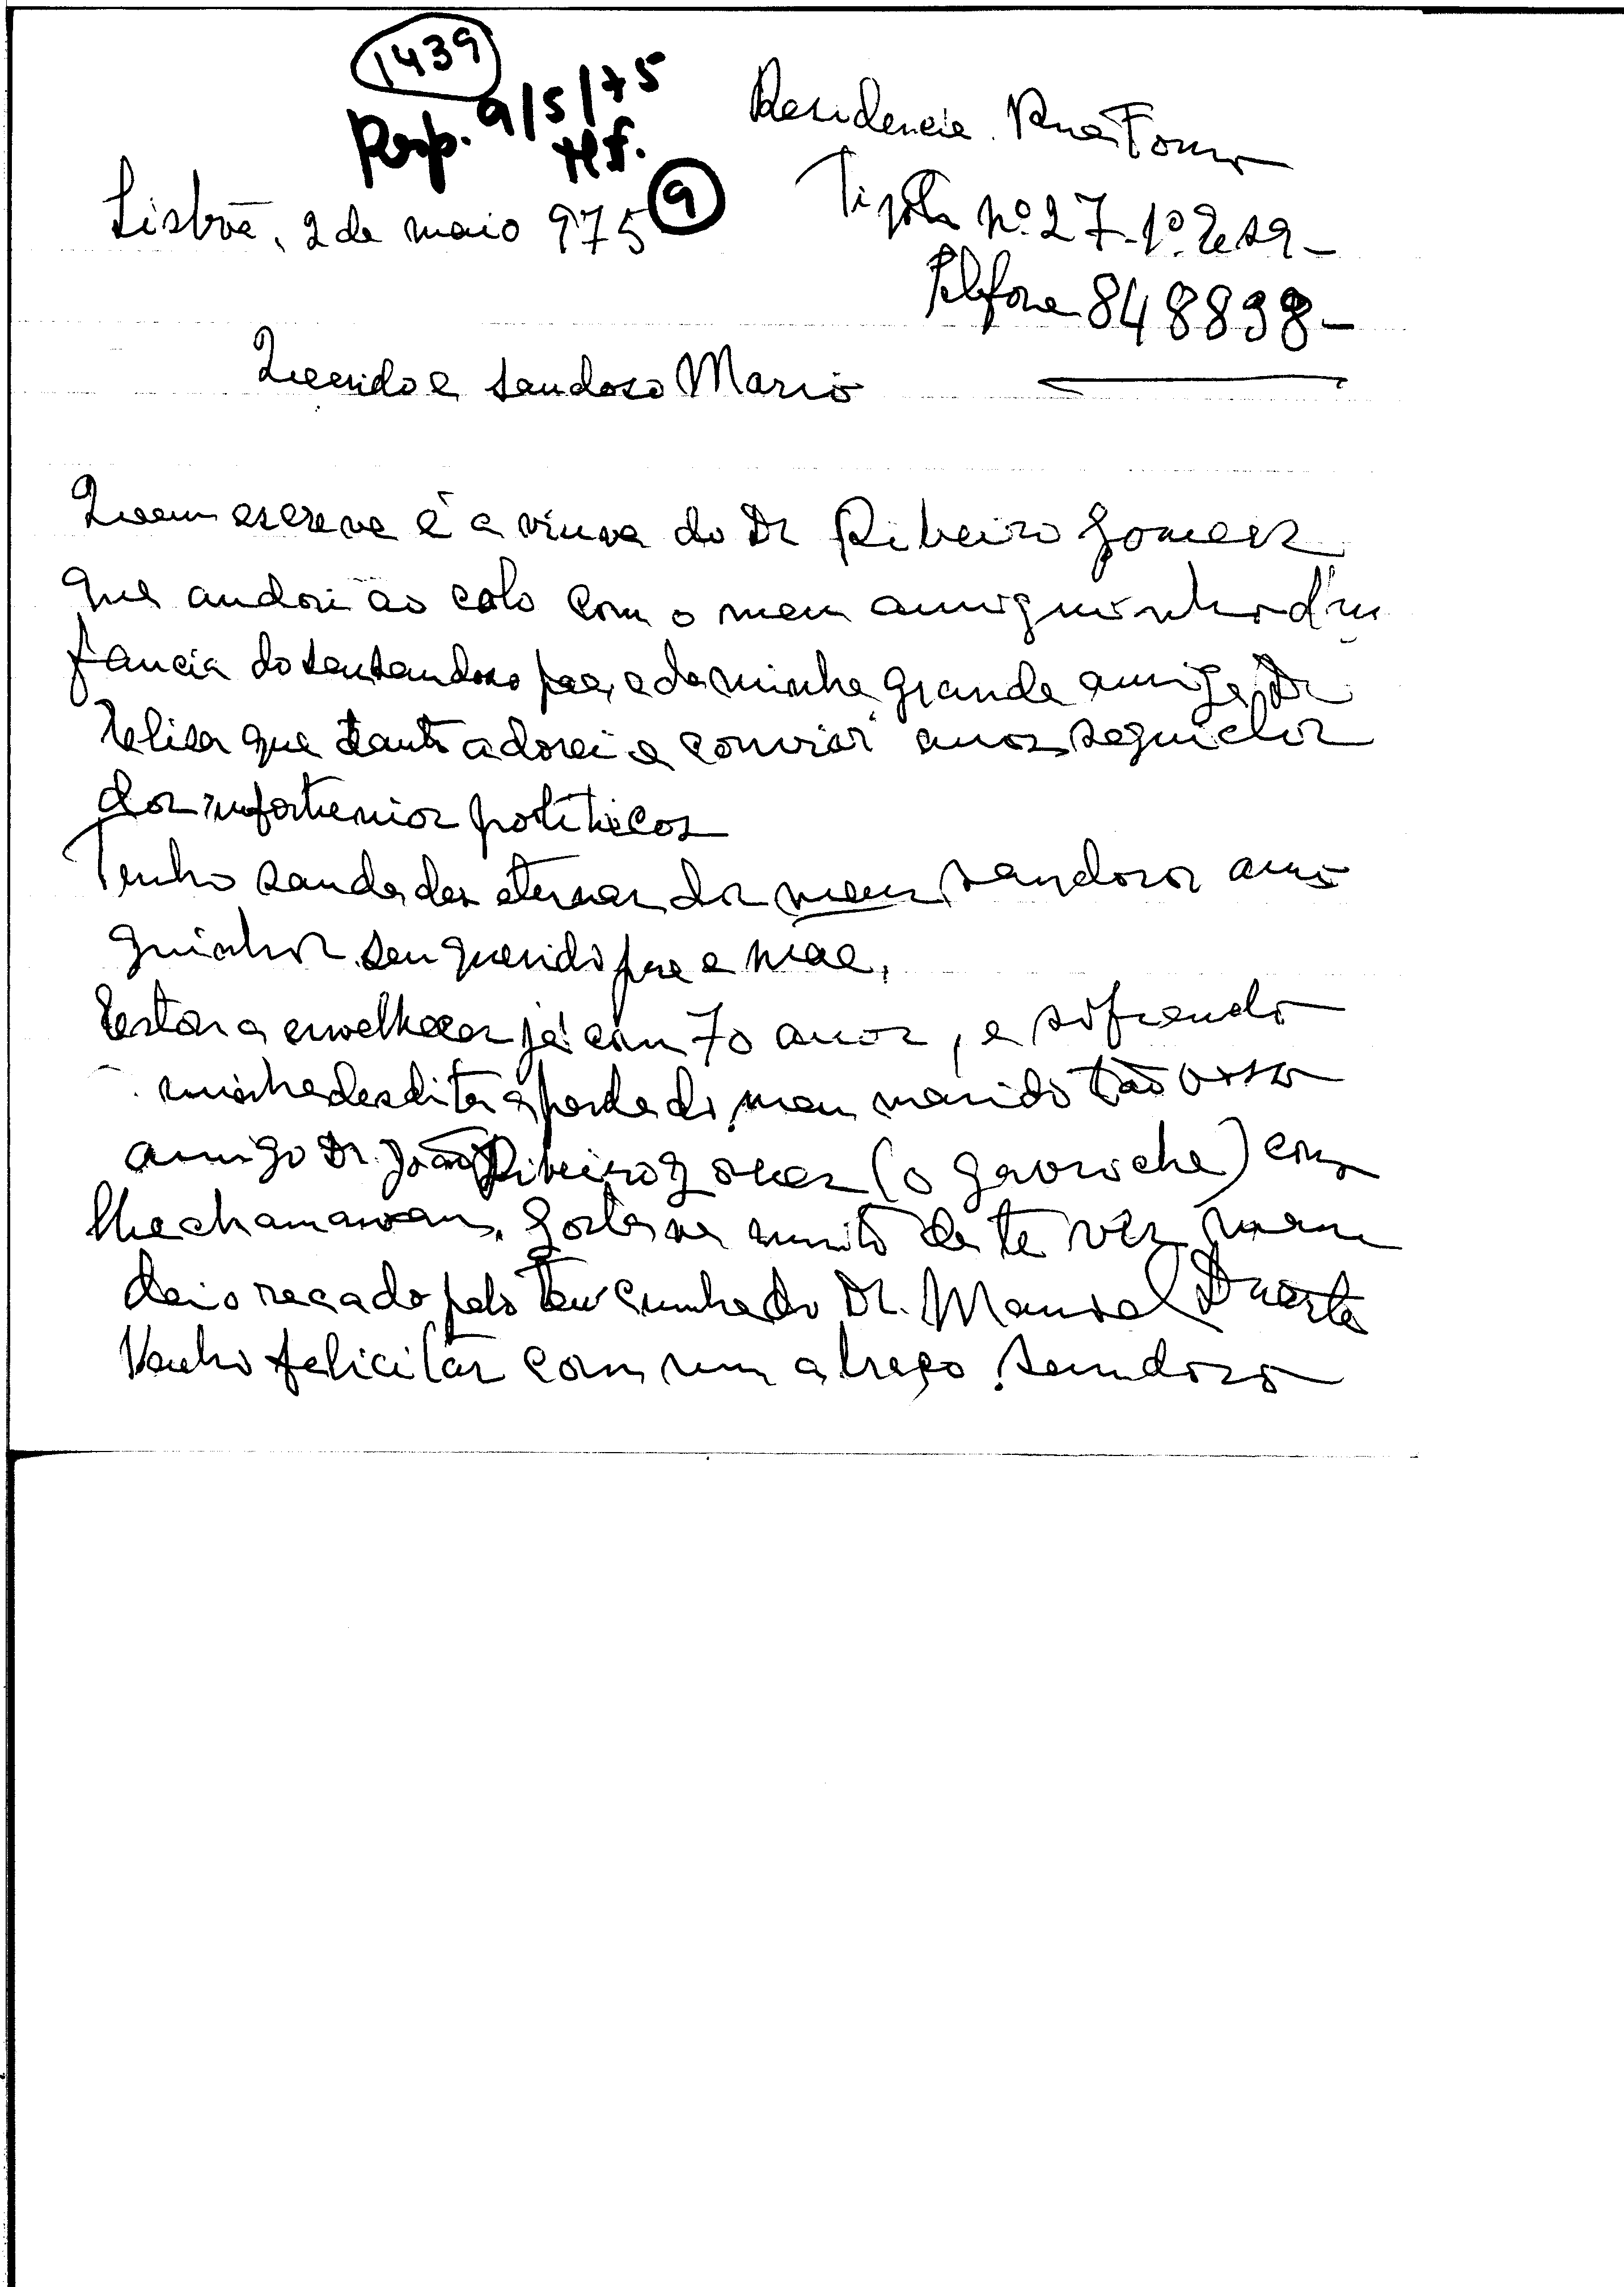 1439
Resp. 9/5/75
tlf.
9
Residencia. Rua Fonso
Tipolo nº. 27-1º. Esq-
Lisboa, 2 de maio 975
Telefone 848898-
Querido e saudoso Mario
Quem escreve é a viuva do Dr Ribeiro Gomes
que andou ao colo com o meu amiguinho d'in
fancia do seu saudoso pae, e da minha grande amiga Dr
Elisa que tanto adorei e convivi anos seguidos
dos infortunios politicos
Tenho saudades eternas dos meus saudosos ami
guinhos seu querido pae e mãe,
Estou a envelhecer já com 70 anos, e sofrendo
minha desdita a perda do meu marido tão vosso
amigo Dr. João Ribeiro Gomes (o gavroche) como
lhe chamavam. Gostava muito de te ver man
dei o recado pelo teu cunhado Dr. Manuel Duarte
Venho felicitar com um abraço saudoso